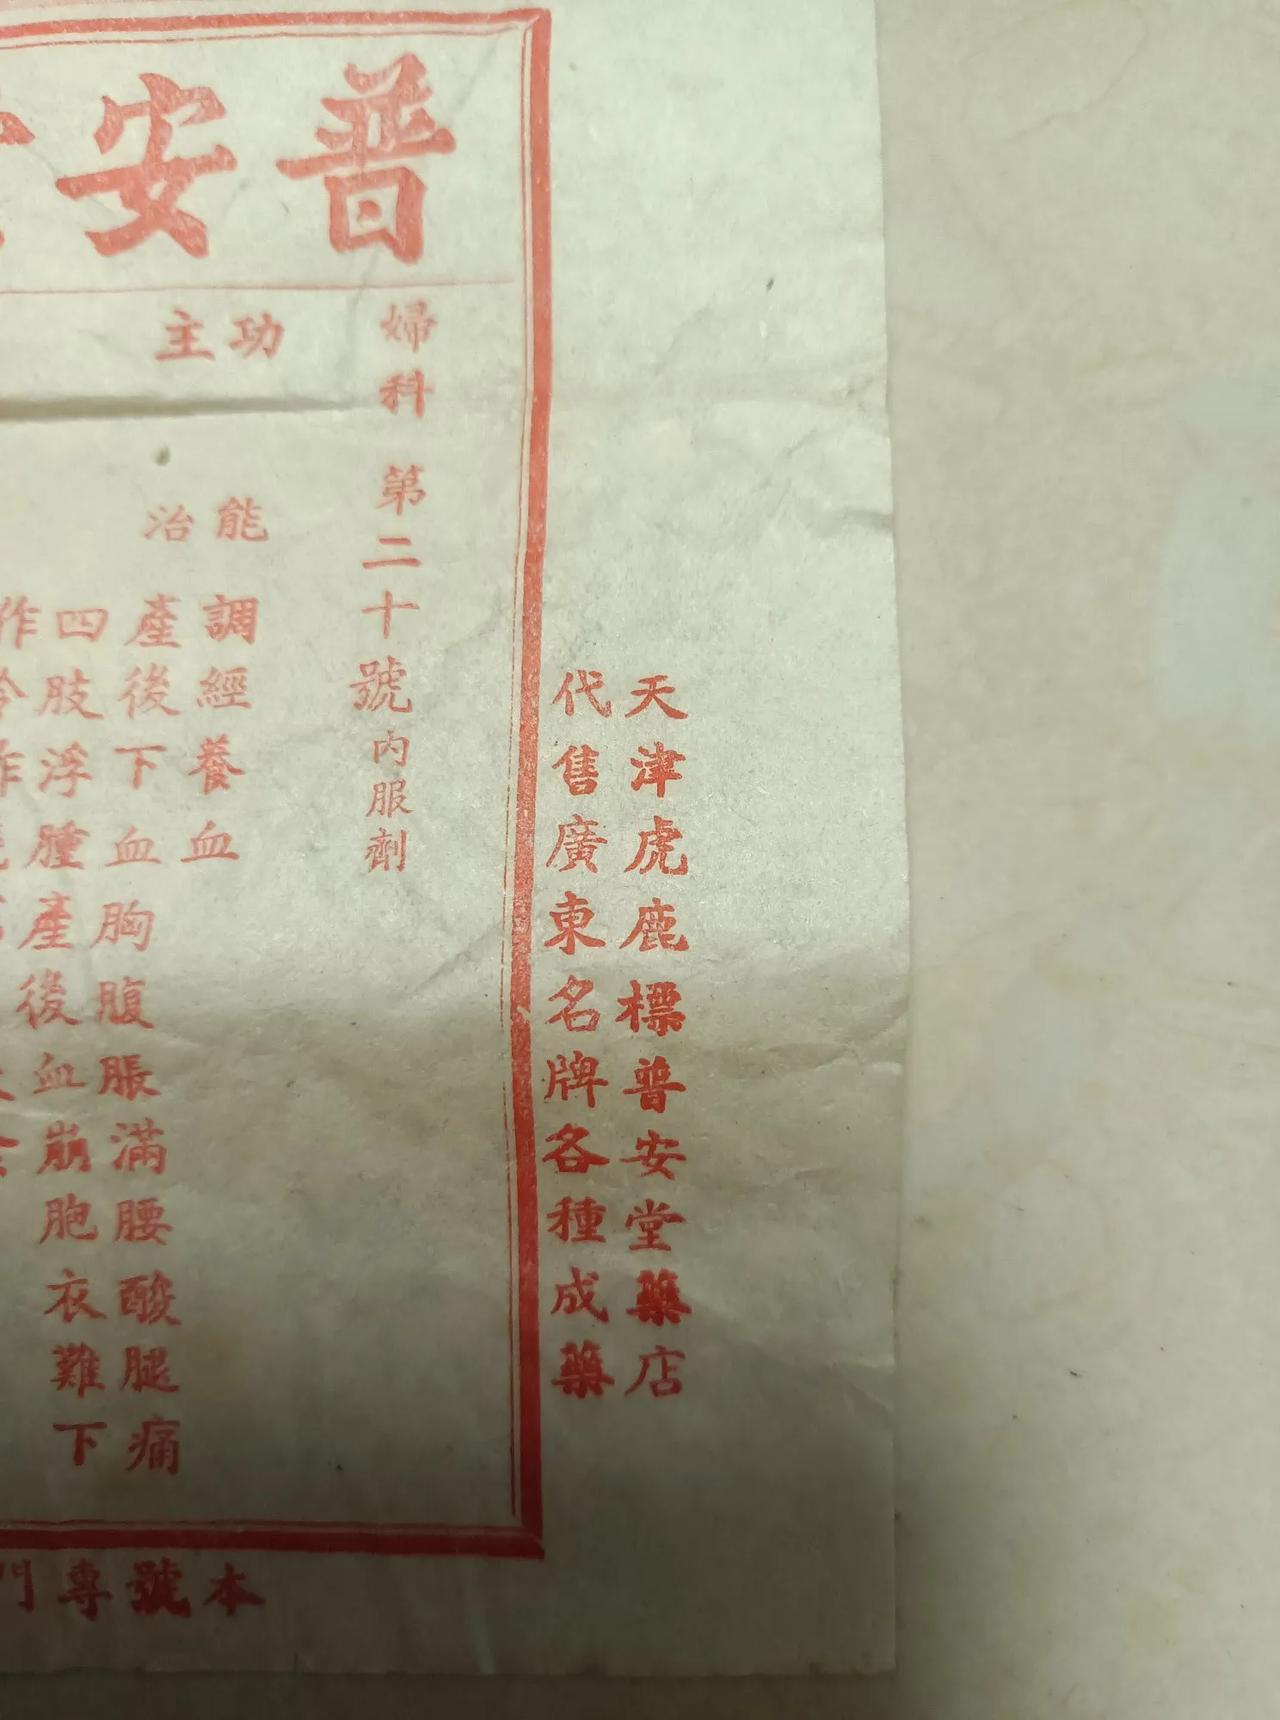 普安
天津虎鹿標普安堂藥店
代售廣東名牌各種成藥
婦科 第二十號內服劑
功主
能治
調經養血
產後下血胸腹脹滿腰酸腿痛
四肢浮腫產後血崩胞衣難下
作冷作
本號專門